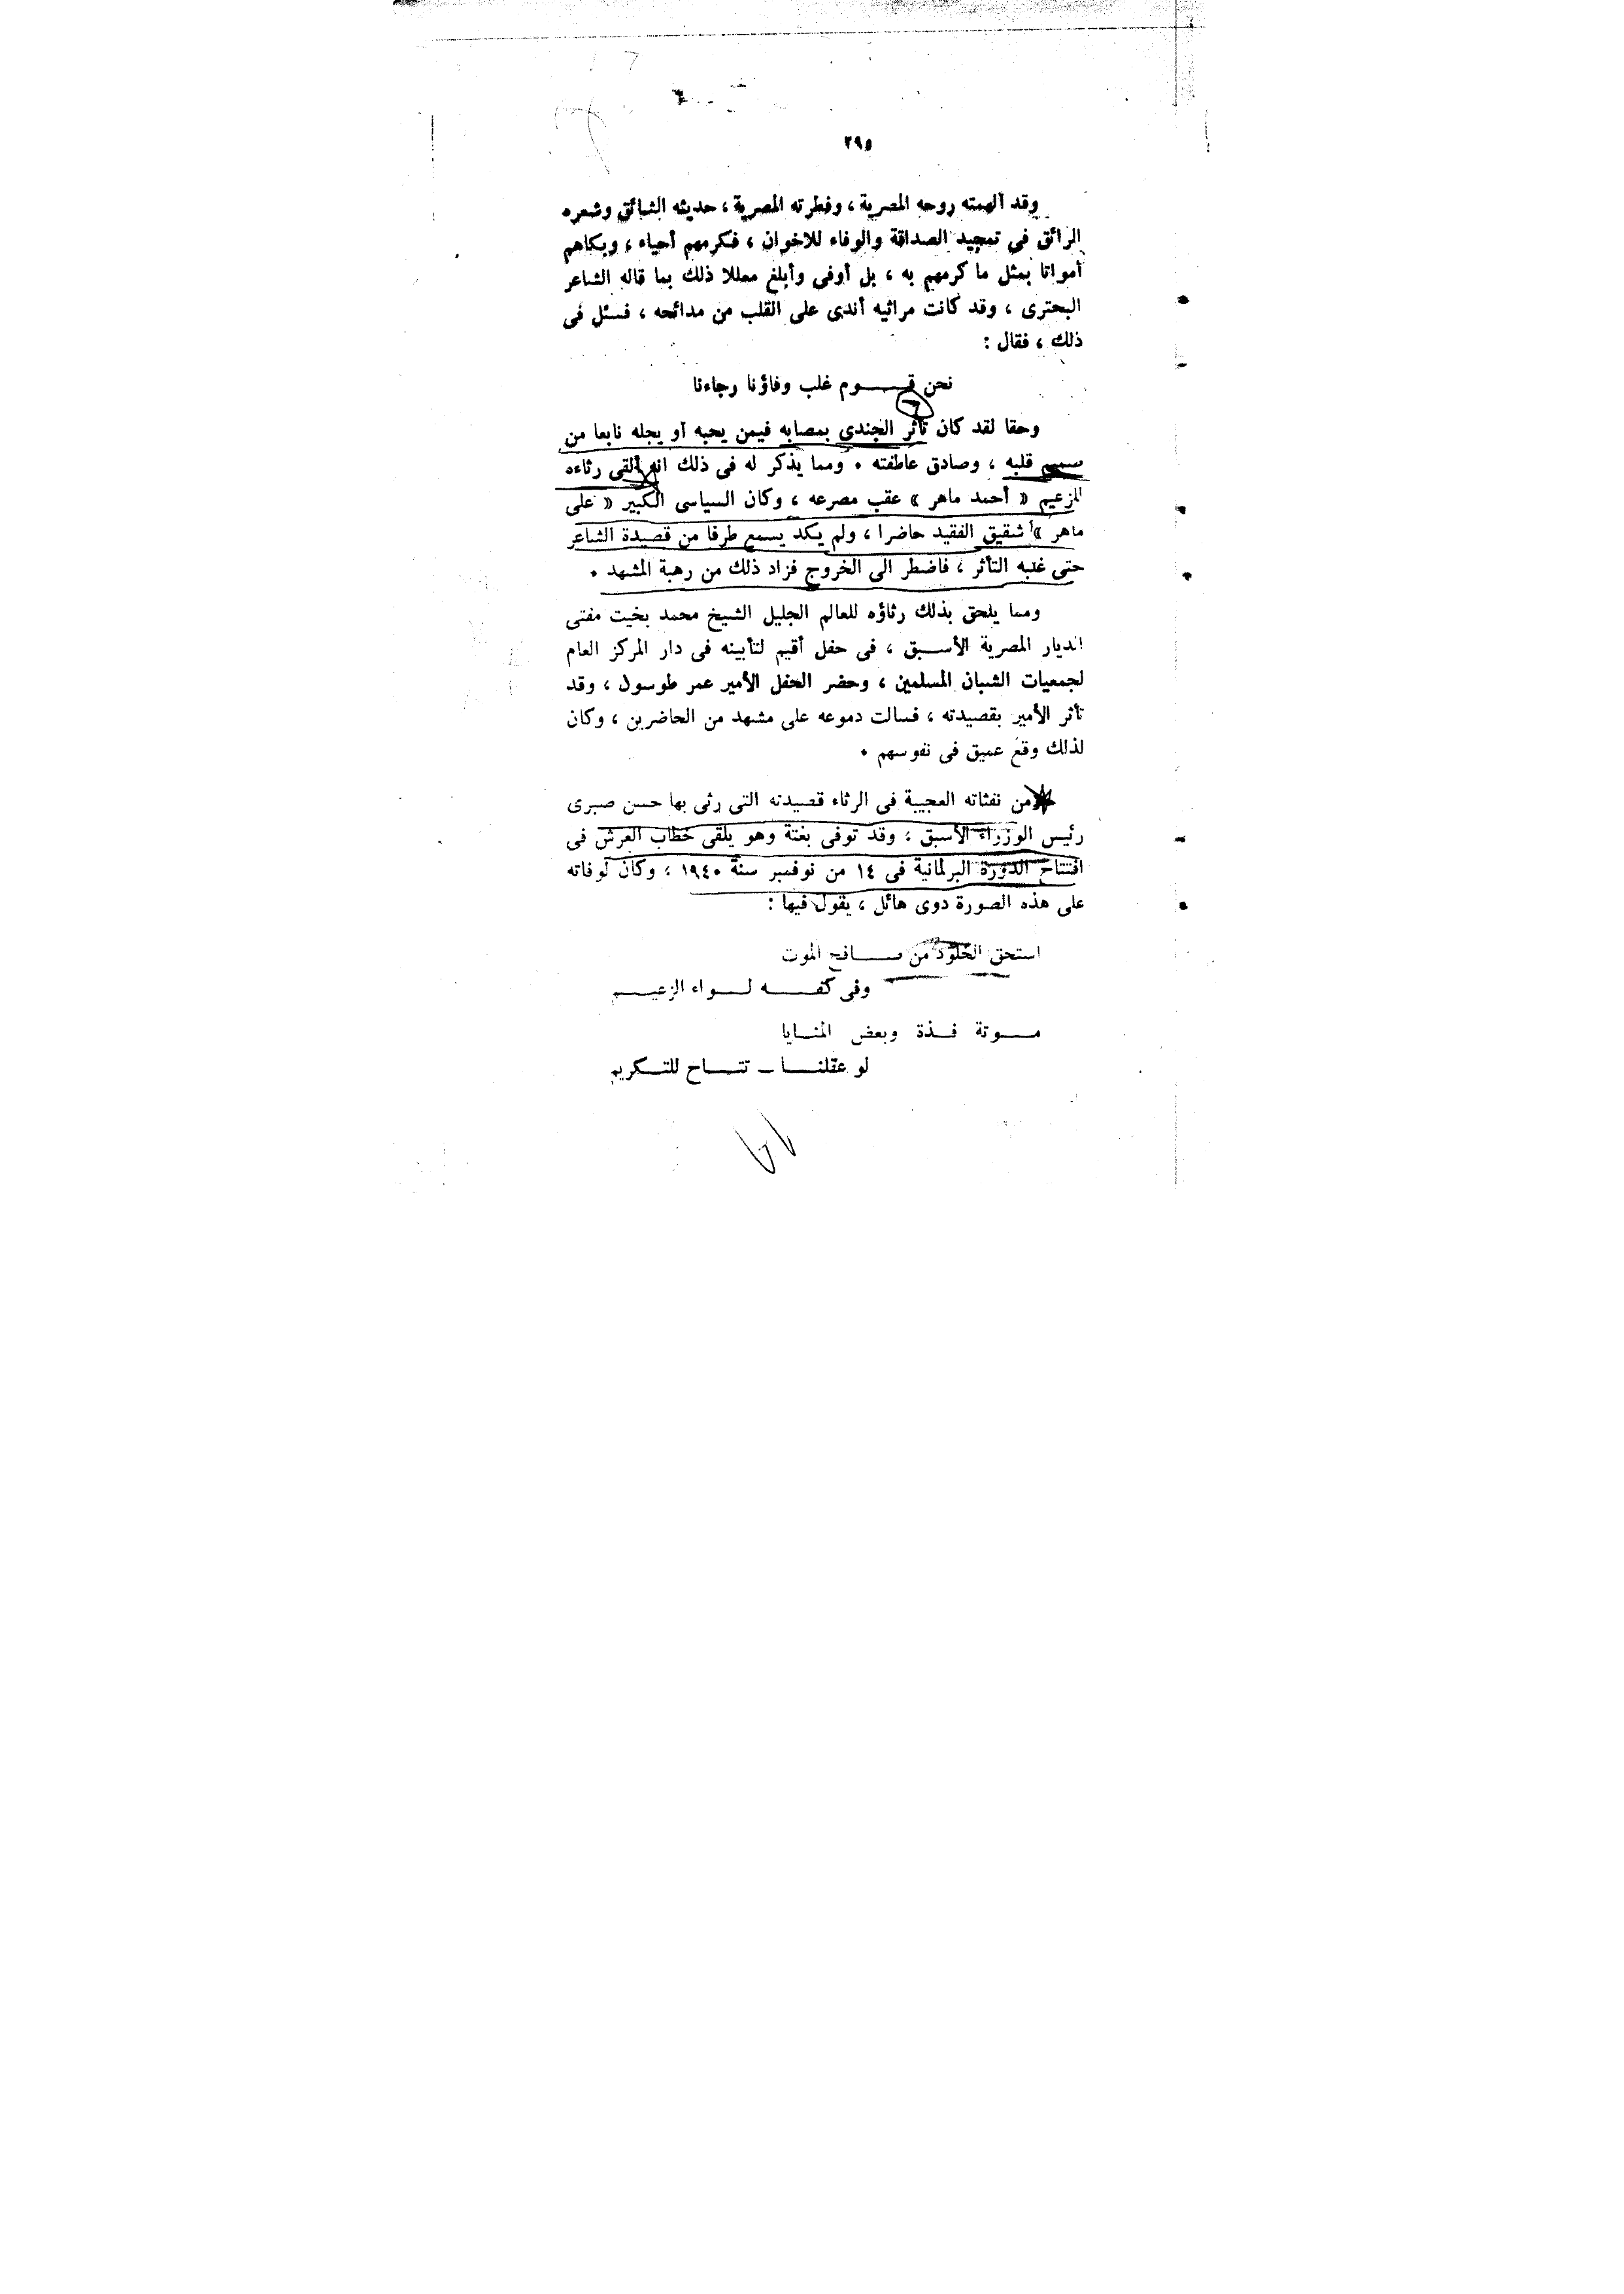 ٢٩٥
وقد ألهمته روحه المصرية ، وفطرته المصرية ، حديثه الشائق وشعره
الرائق فى تمجيد الصداقة والوفاء للاخوان ، فكرمهم أحياء ، وبكاهم
أمواتا بمثل ما كرمهم به ، بل أوفى وأبلغ معللا ذلك بما قاله الشاعر
البحترى ، وقد كانت مراثيه أندى على القلب من مدائحه ، فسئل فى
ذلك ، فقال :
نحن قـــوم غلب وفاؤنا رجاءنا
وحقا لقد كان تأثر الجندى بمصابه فيمن يحبه أو يجله نابعا من
صميم قلبه ، وصادق عاطفته . ومما يذكر له فى ذلك انه ألقى رثاءه
للزعيم « أحمد ماهر » عقب مصرعه ، وكان السياسى الكبير « على
ماهر » شقيق الفقيد حاضرا ، ولم يكد يسمع طرفا من قصيدة الشاعر
حتى غلبه التأثر ، فاضطر الى الخروج فزاد ذلك من رهبة المشهد .
ومما يلحق بذلك رثاؤه للعالم الجليل الشيخ محمد بخيت مفتى
الديار المصرية الأســـبق ، فى حفل أقيم لتأبينه فى دار المركز العام
لجمعيات الشبان المسلمين ، وحضر الحفل الأمير عمر طوسون ، وقد
تأثر الأمير بقصيدته ، فسالت دموعه على مشهد من الحاضرين ، وكان
لذلك وقع عميق فى نفوسهم .
ومن نفثاته العجيبة فى الرثاء قصيدته التى رثى بها حسن صبرى
رئيس الوزراء الأسبق ؛ وقد توفى بغتة وهو يلقى خطاب العرش فى
افتتاح الدورة البرلمانية فى ١٤ من نوفمبر سنة ١٩٤٠ ؛ وكان لوفاته
على هذه الصورة دوى هائل ، يقول فيها :
استحق الخلود من صـــافح الموت
وفى كفـــه لـــواء الزعيـــم
مـــوتة فـــذة وبعض المنـــايا
لو عقلنـــا ــ تتـــاح للتـــكريم